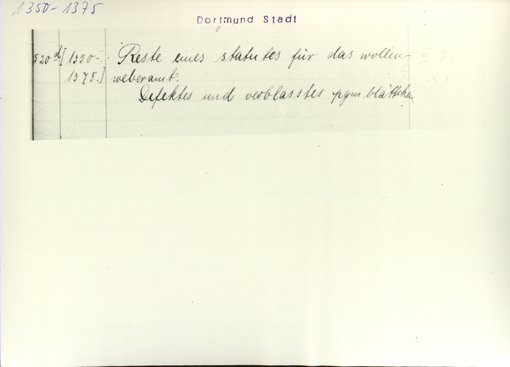 1350-1375
Dortmund Stadt
520d [1350- Reste eines statutes für das wollen-
1375.] weberamt.
Defektes und verblasstes pgm blättchen